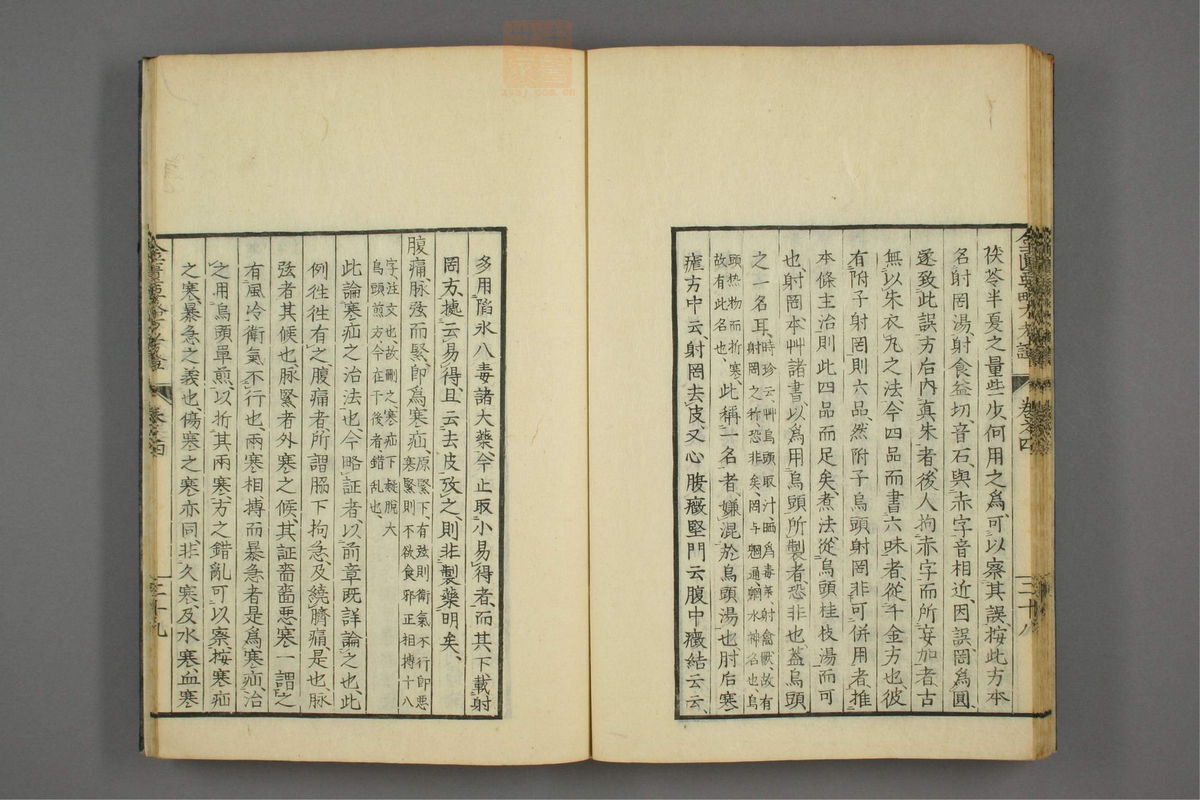 茯苓半夏之量些少、何用之爲、可以察其誤、按此方本
名射罔湯、射食益切、音石、與赤字音相近、因誤罔爲圓、
遂致此誤、方后內真朱者、後人拘赤字而所妄加者、古
無以朱衣丸之法、今四品而書六味者、從千金方也、彼
有附子射罔則六品、然附子烏頭射罔非可併用者、推
本條主治則此四品而足矣、煮法從烏頭桂枝湯而可
也、射罔本艸諸書、以爲用烏頭所製者、恐非也、蓋烏頭
之一名耳、時珍云、艸烏頭取汁晒爲毒藥射禽獸、故有
射罔之称、恐非矣、罔与魍通、魍水神名也、烏
頭熱物而折寒、
故有此名也、
此稱一名者、嫌混於烏頭湯也、肘后寒
疝方中云、射罔去皮、又心腹癥堅門云、腹中癥結云云、
金匱要略方考證
卷之四
三十八
多用陷氷八毒諸大藥、今止取小易得者、而其下載射
罔方、據云易得、且云去皮攷之、則非製藥明矣、
腹痛、脉弦而緊、卽爲寒疝、原緊下有弦則衛氣不行卽惡
寒緊則不欲食邪正相搏十八
字、注文也、故刪之、寒疝下、疑脫大
烏頭煎方、今在于後者、錯亂也、
此論寒疝之治法也、今略証者、以前章既詳論之也、此
例徃徃有之、腹痛者、所謂脇下拘急及繞臍痛、是也、脉
弦者其候也、脉緊者外寒之候、其証嗇嗇悪寒、一謂之
有風冷、衛氣不行也、兩寒相搏而暴急者、是爲寒疝、治
之用烏頭單煎、以折其兩寒、方之錯亂可以察、按寒疝
之寒、暴急之義也、傷寒之寒亦同、非久寒、及水寒、血寒
卷之四
三十九